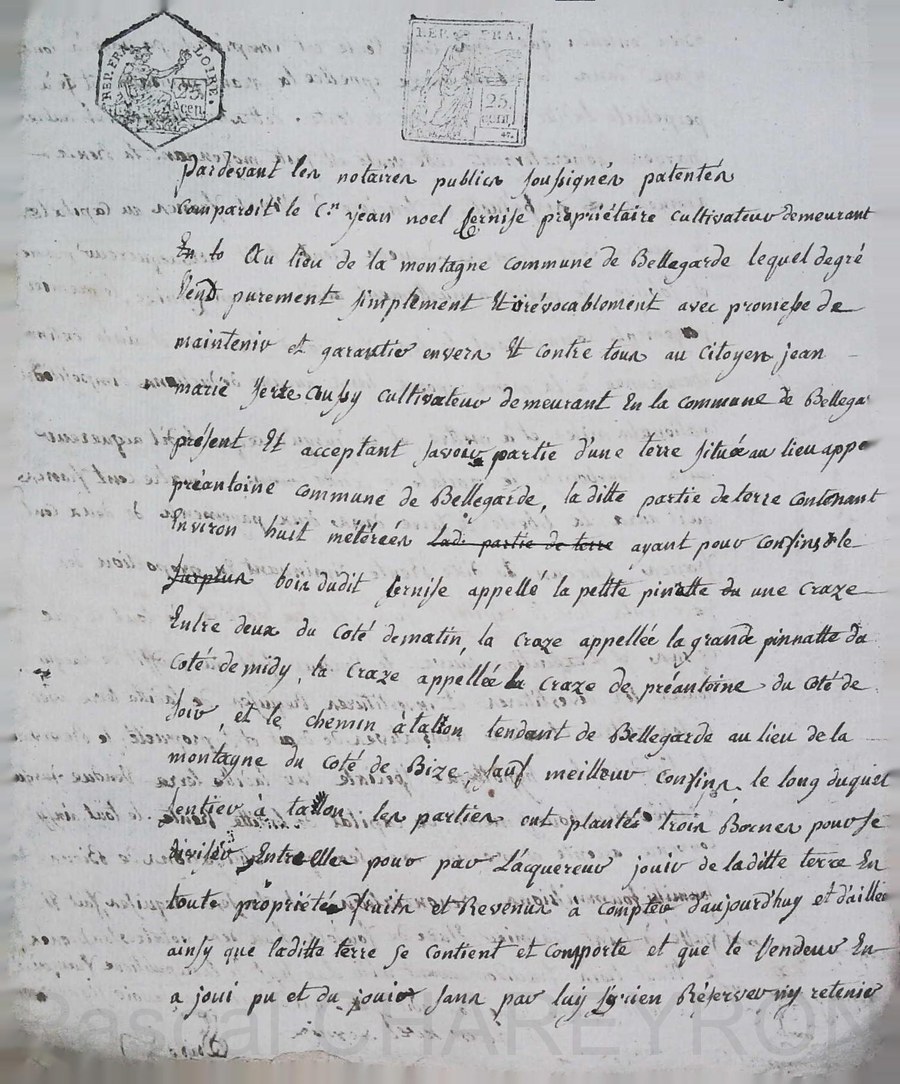 REP. FRA. LOIRE.
25. cen.
REP. FRA.
25. cen.
Pardevant les notaires publics soussignés patentés
comparoit le C.en jean noel fernise propriétaire cultivateur demeurant
En to Au lieu de la montagne commune de Bellegarde lequel degré
Vend purement simplement Et irévocablement avec promesse de
maintenir et garantir envers Et contre tous au Citoyen jean
marie cultivateur demeurant En la commune de Bellega
présent Et acceptant savoir partie d'une terre située au lieu appe
préantoine commune de Bellegarde, la ditte partie de terre contenant
Environ huit métérées lad. partie de terre ayant pour confins le
surplus bois dudit fernise appellé la petite pinatte une craze
Entre deux du coté de matin, la craze appellée la grande pinnatte du
coté de midy, la craze appellée la craze de préantoine du coté de
soir, et le chemin à tallon tendant de Bellegarde au lieu de la
montagne du coté de Bize, sauf meilleur confins, le long duquel
sentier à tallon les parties ont plantés trois Bornes pour se
diviser Entre elles pour par L'acquereur jouir de laditte terre En
toute propriétés fruits et Revenus a compter d'aujourd'huy et d'aillieu
ainsy que laditte terre se contient et comporte et que le Vendeur En
a joui pu et du jouir sans par luy s'y rien Réserver ny retenir
Pascal CHAREYRON